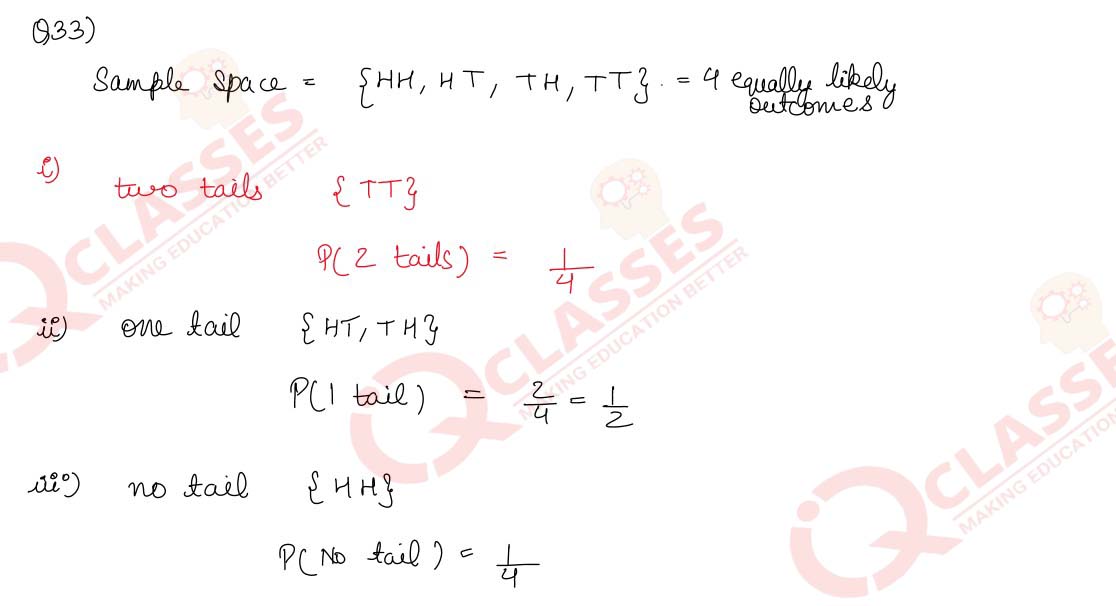 Q33)
Sample Space = {HH, HT, TH, TT}. = 4 equally likely
outcomes
i)
two tails {TT}
P(2 tails) = 1/4
ii) one tail {HT, TH}
P(1 tail) = 2/4 = 1/2
iii) no tail {HH}
P(No tail) = 1/4
IQ CLASSES
MAKING EDUCATION BETTER
IQ CLASSES
MAKING EDUCATION BETTER
IQ CLASSES
MAKING EDUCATION